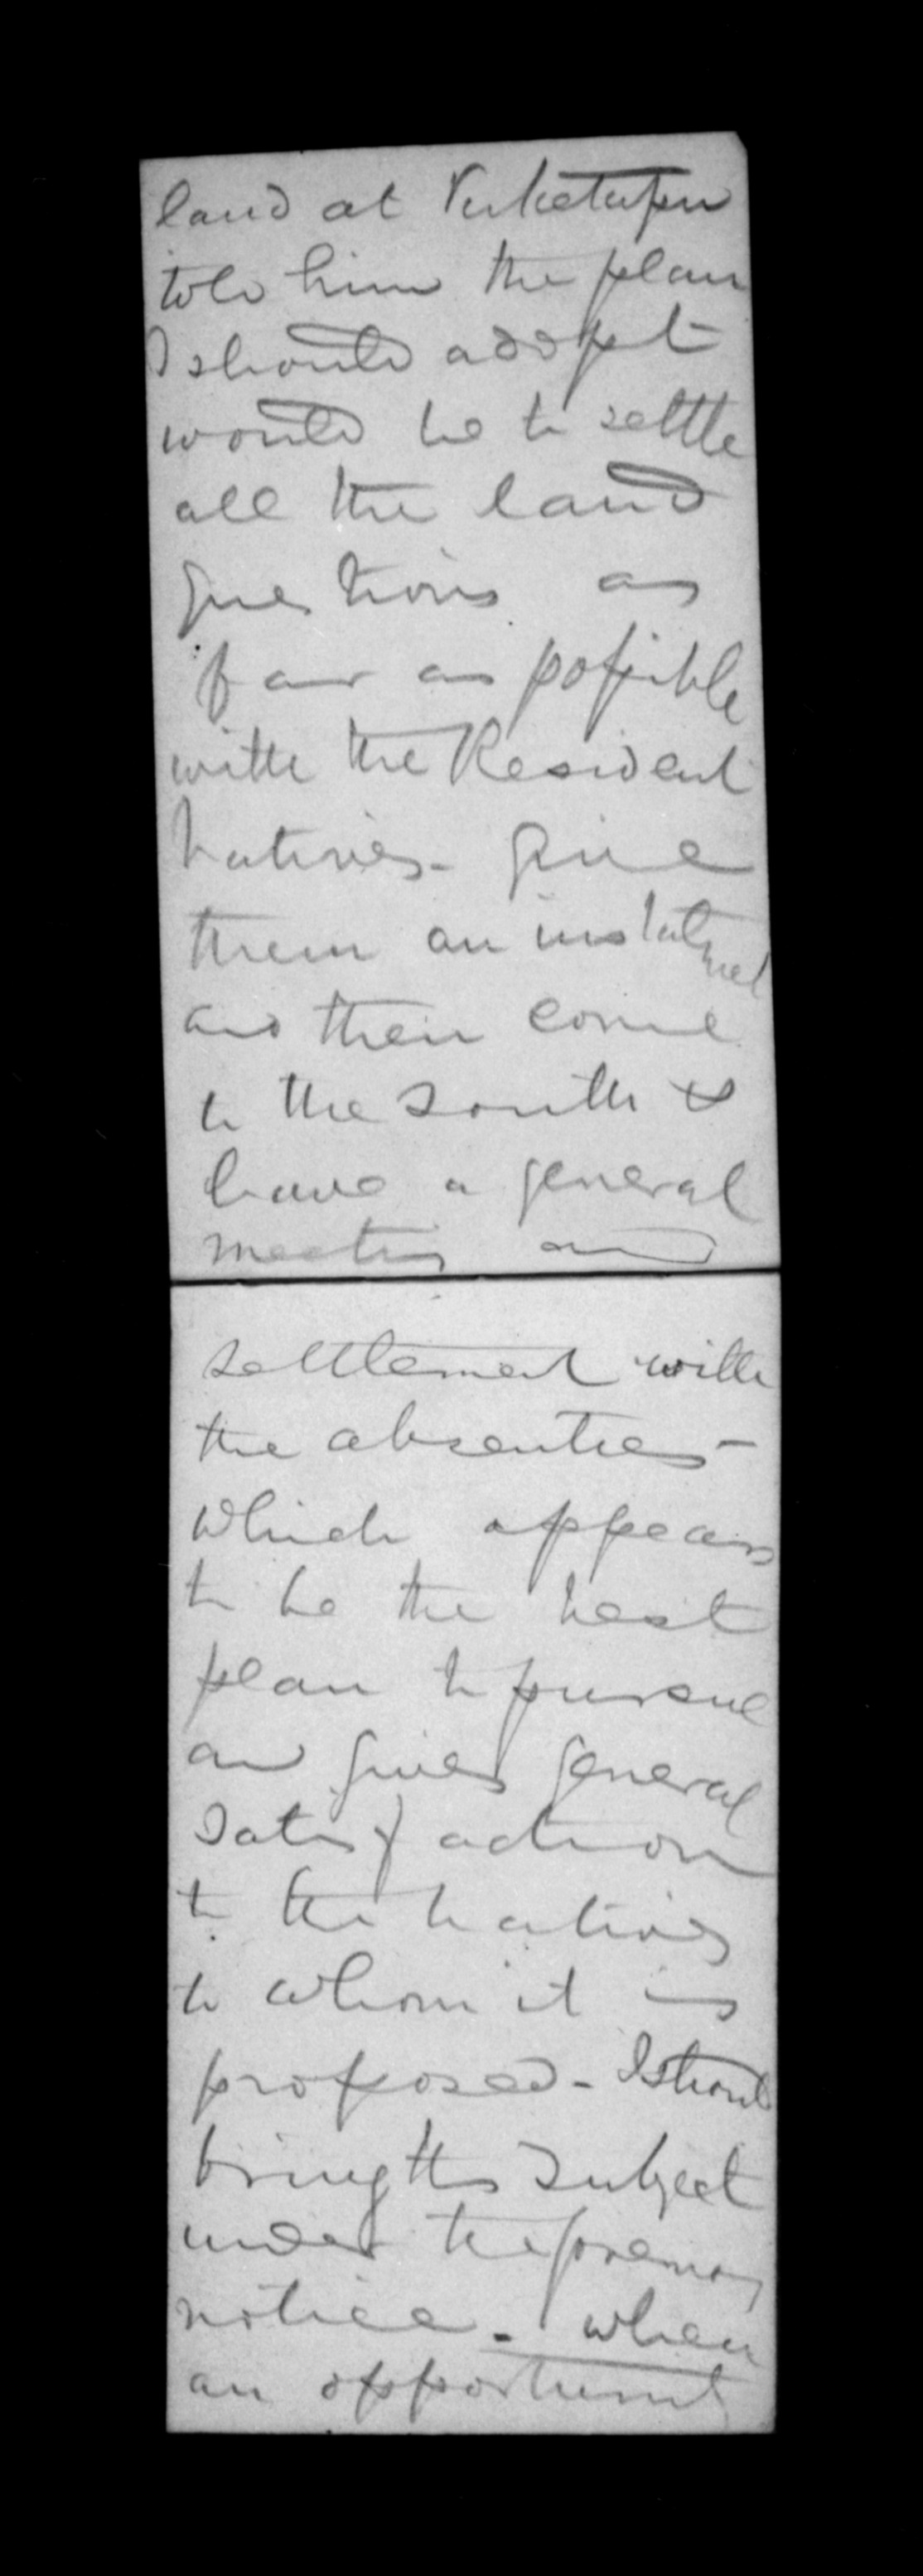 land at Puketapu
told him the plan
I should adopt
would be to settle
all the land
questions as
far as possible
with the Resident
natives - give
them an instalment
and then come
to the South &
have a general
meeting and
settlement with
the absentees -
which appears
to be the best
plan to pursue
and gives general
satisfaction
to the natives
to whom it is
proposed - I should
bring the subject
under
notice - when
an opportunity